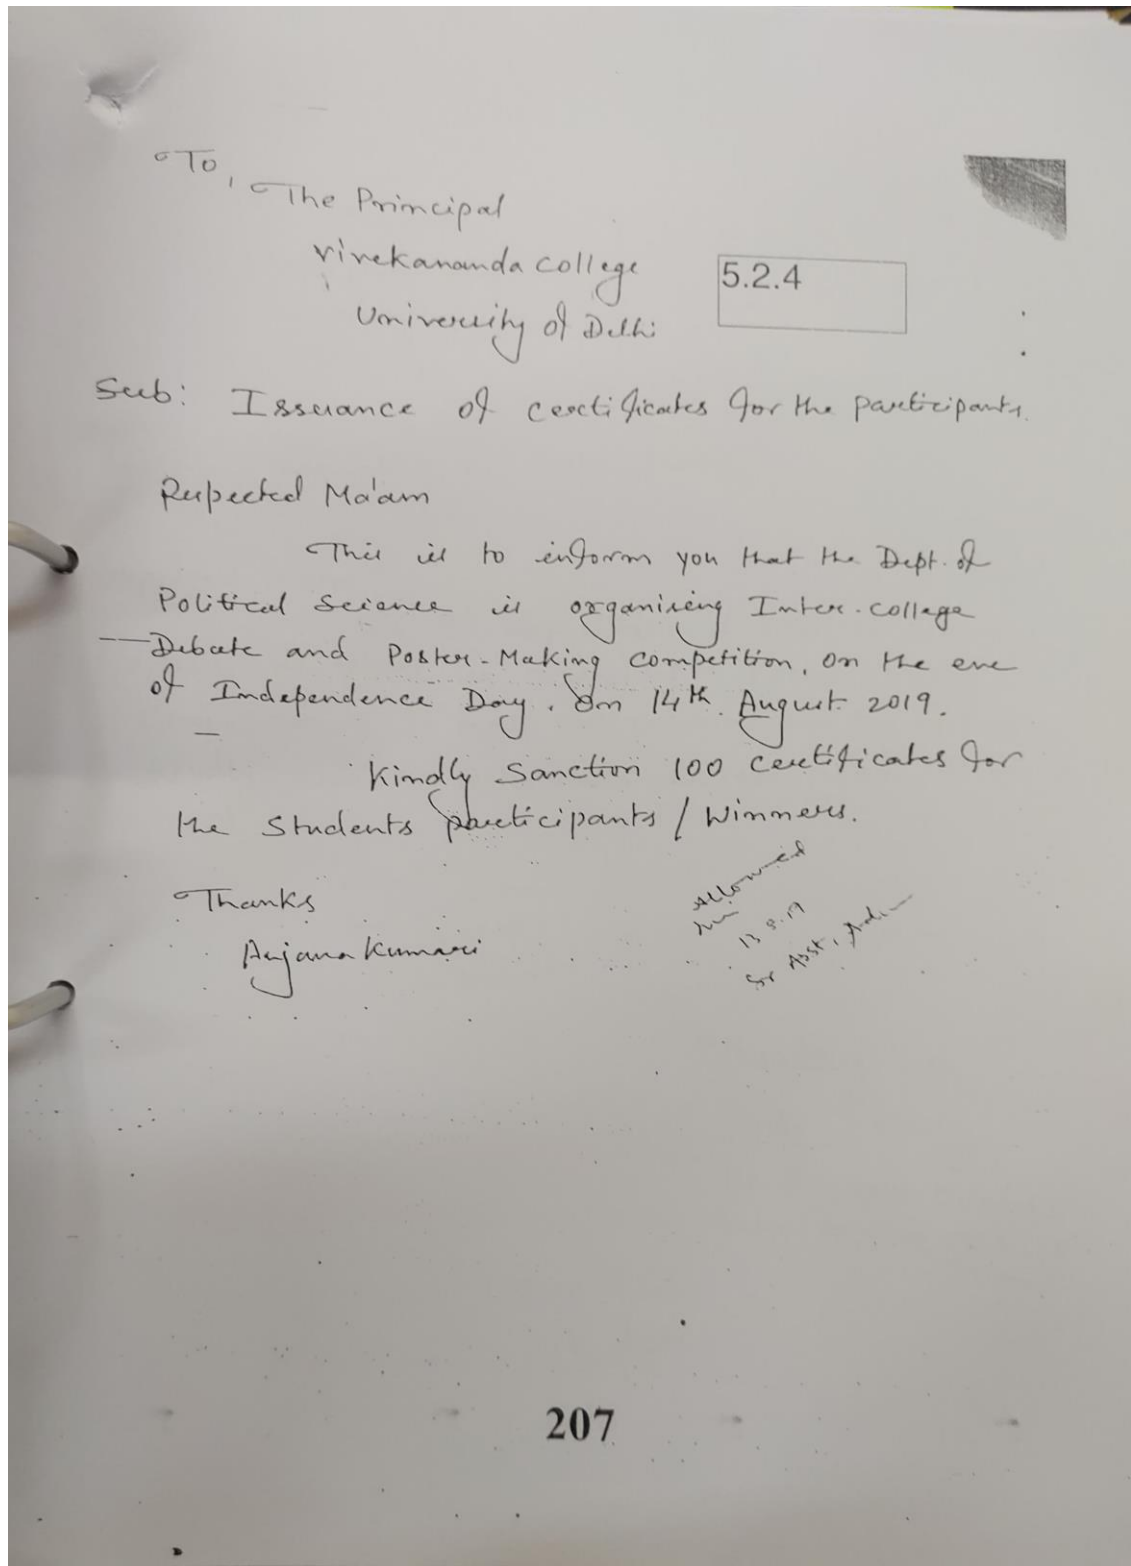 To,
The Principal
Vivekananda College
University of Delhi
5.2.4
Sub: Issuance of certificates for the participants.
Respected Ma'am
This is to inform you that the Dept. of
Political Science is organising Inter-College
Debate and Poster-Making Competition, on the eve
of Independence Day. On 14th August 2019.
Kindly Sanction 100 certificates for
the Students participants / Winners.
Thanks
Anjana Kumari
Allowed
13.8.19
Sr Asst, Adm
207